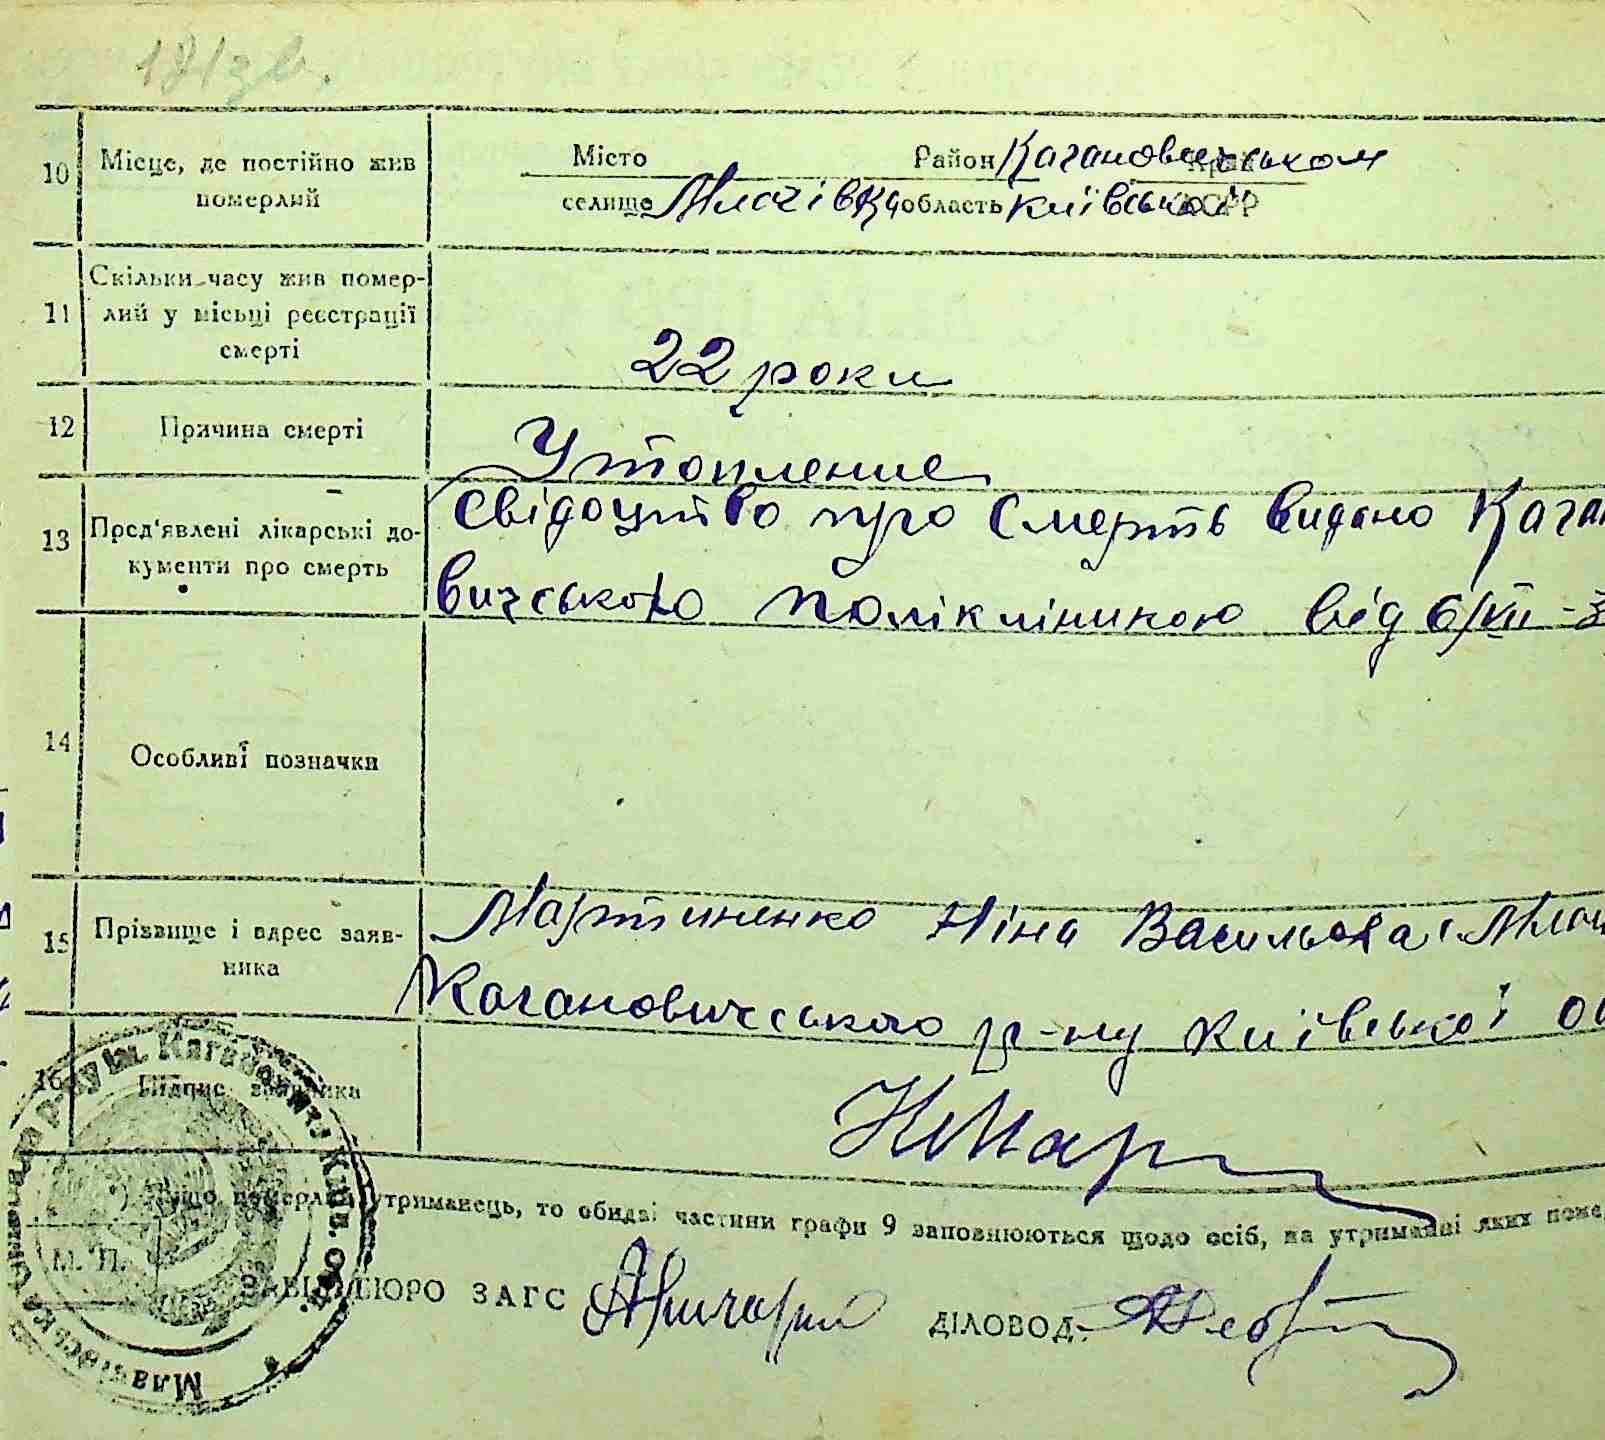 181зв.
10 Місце, де постійно жив Місто Район Кагановичському Край
померлий селище Млачівка область Київської СССРР
Скільки часу жив помер-
11 лий у місьці реєстрації
смерті 22 роки
12 Причина смерті Утопление
13 Пред'явлені лікарські до- Свідоцтво про смерть видано Кагано
кументи про смерть вичською полікліникою від 6/VII-3
14 Особливі позначки
15 Прізвище і адрес заяв- Мартиненко Ніна Васильевна с. Млач
ника Кагановичського р-ну Київської об
16 Підпис заявника НМар
*) Якщо померлий утриманець, то обидві частини графи 9 заповнюються щодо осіб, на утриманні яких поме
М. П.
ЗАВІД. БЮРО ЗАГС ДІЛОВОД:
Млачівська сільська рада р-ну ім. Кагановича Київ. обл.